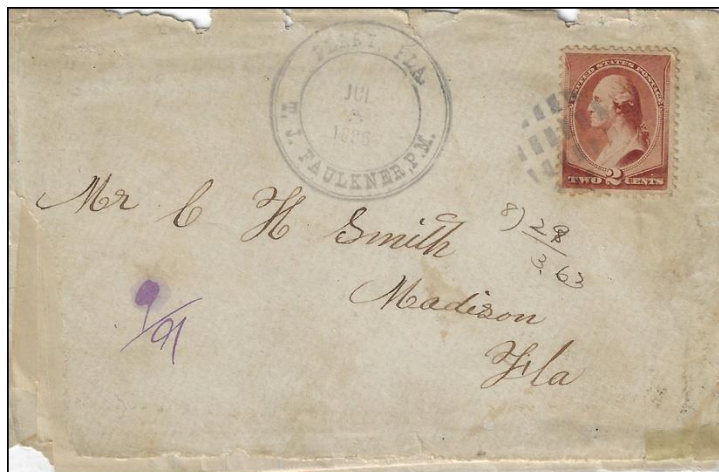 PERRY, FLA.
JUL
1886
T. J. FAULKNER, P.M.
UNITED STATES POSTAGE
TWO 2 CENTS
Mr C H Smith
8) 28
3.63
Madison
Fla